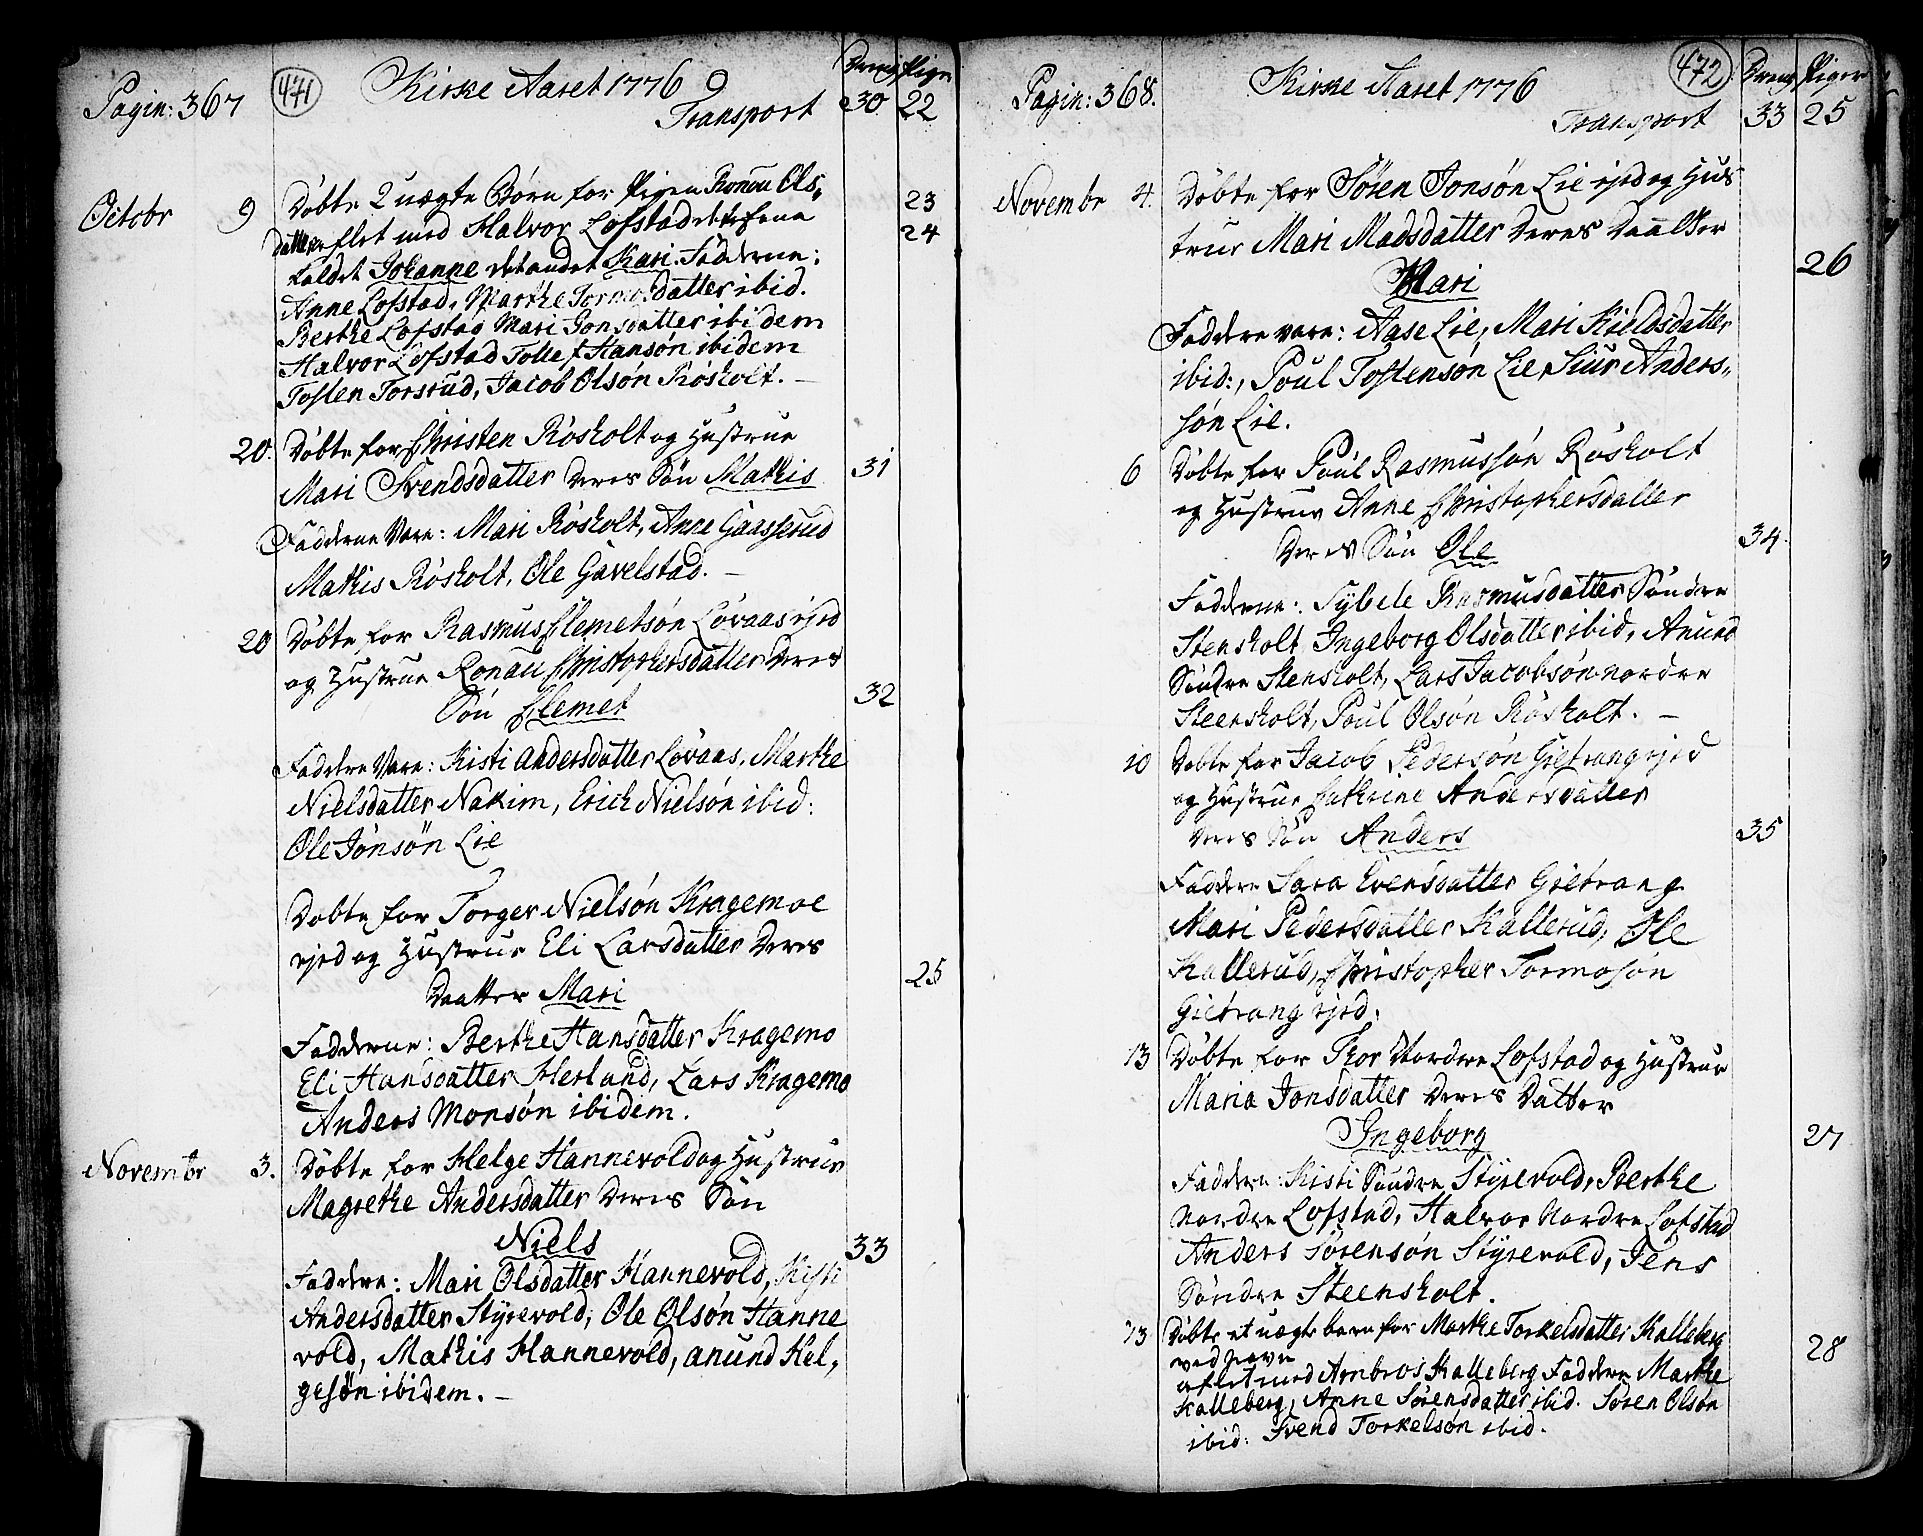 Pagin: 367
471
Kirke Aaret 1776
Dreng Piger
Transport 30 22
Octobr 9 Döbte 2 uægte Börn for Pigen Ronou Ols- 23
datter aflet med Halvor Lofstad det ene 24
kaldet Johanne det andet Kari. Fadderne:
Anne Lofstad, Marthe Tormosdatter ibid.
Berthe Lofstad Mari Jonsdatter ibidem
Halvor Lofstad Tollef Hansón ibidem
Tosten Torsrud, Jacob Olsón Rósholt. -
20. Döbte for Christen Rósholt og Hustrue
Mari Svendsdatter deres Sön Mathis 31
Fadderne vare: Mari Rósholt, Anne Gaasserud
Mathis Rósholt, Ole Gavelstad. -
20 Döbte for Rasmus Clemetsón Lövaas ejed
og Hustrue Ronau Christophersdatter deres
Sön Clemet 32
Faddere vare: Kisti Andersdatter Lövaas, Marthe
Nielsdatter Nakim, Erich Nielsón ibid:
Ole Jónsön Lie
Döbte for Torger Nielsón Kragemoe
ejed og Hustrue Eli Larsdatter deres
Daatter Mari 25
Fadderne: Berthe Hansdatter Kragemo
Eli Hansdatter Herland, Lars Kragemo
Anders Monsón ibidem.
Novembr 3. Döbte for Helge Hannevold og Hustrue
Magrethe Andersdatter deres Sön
Niels 33
Faddere: Mari Olsdatter Hannevold, Kisti
Andersdatter Styrevold, Ole Olsón Hanne
vold, Mathis Hannevold, anund Hel,
gesön ibidem. -
Pagin: 368.
Kirke Aaret 1776
472
Dreng Piger
Transport 33 25
Novembr 4. Döbte for Sören Jonsön Lie ejed og Hus
true Mari Madsdatter deres Daatter
Mari 26
Faddere vare: Aase Lie, Mari Kieldsdatter
ibid:, Poul Tostensón Lie, Siur Anders,,
són Lie.
6 Döbte for Poul Rasmussón Rósholt
og Hustrue Anne Christophersdatter
deres Sön Ole 34.
Fadderne: Sybele Rasmusdatter Söndre
Stensholt Ingeborg Olsdatter ibid, Anund
Söndre Stensholt, Lars Jacobsón nordre
Steensholt, Poul Olsón Rósholt. -
10 Döbte for Jacob Pedersón Gietrang ejed
og Hustrue Cathrine Andersdatter
deres Sön Anders 35
Faddere Sara Evensdatter Gietrang
Mari Pedersdatter Kallerud, Ole
Kallerud, Christopher Tormosón
Gietrang ejed.
13 Döbte for Thor Nordre Lofstad og Hustrue
Maria Jonsdatter deres Datter
Ingeborg 27
Faddere: Kisti Söndre Styrevold, Berthe
Nordre Lofstad, Halvor Nordre Lofstad
Anders Sörensón Styrevold, Jens
Söndre Steensholt.
13 Döbte et uægte barn for Marthe Torkelsdatter Kalleberg 28
ved navn
aflet med Ambros Kalleberg Faddere Marthe
Kalleberg, Anne Sörensdatter ibid. Sören Olsón
ibid: Svend Torkelsón ibid.